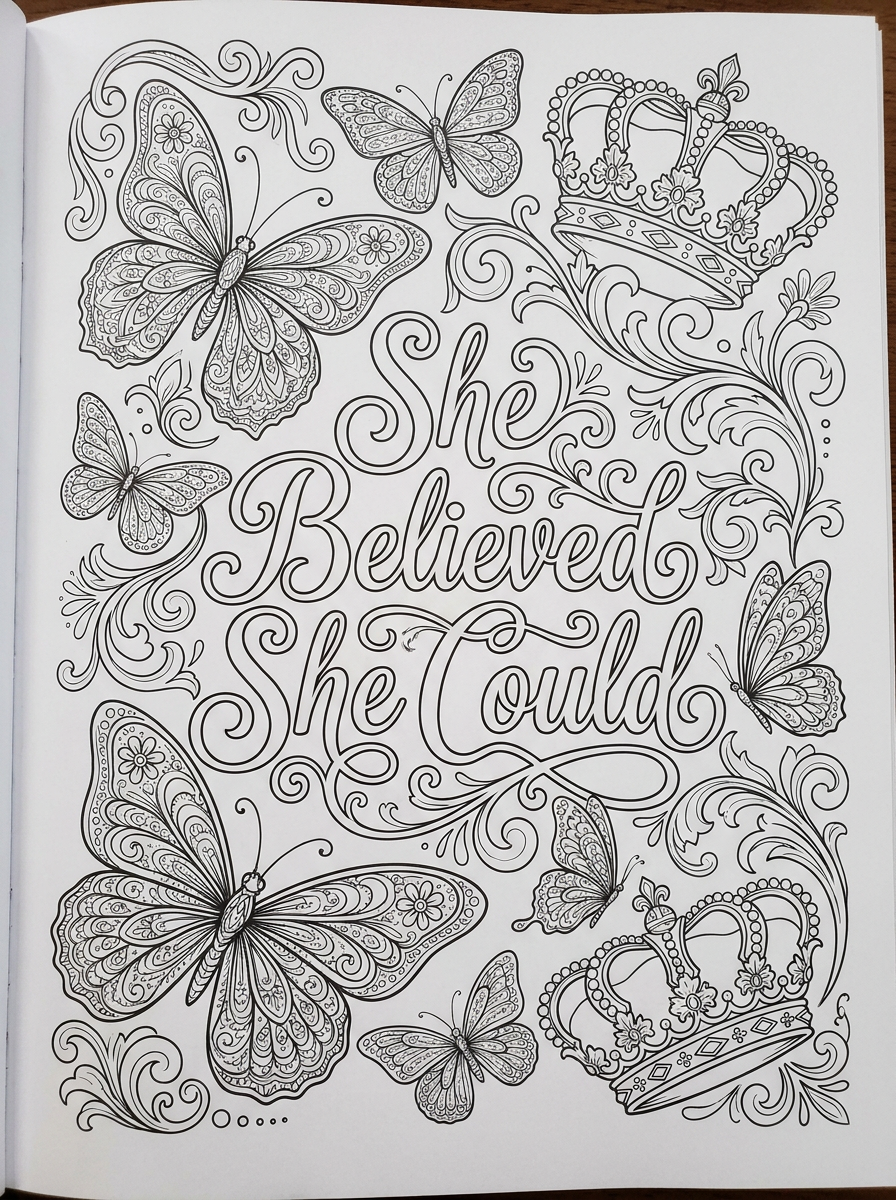 She
Believed
She Could